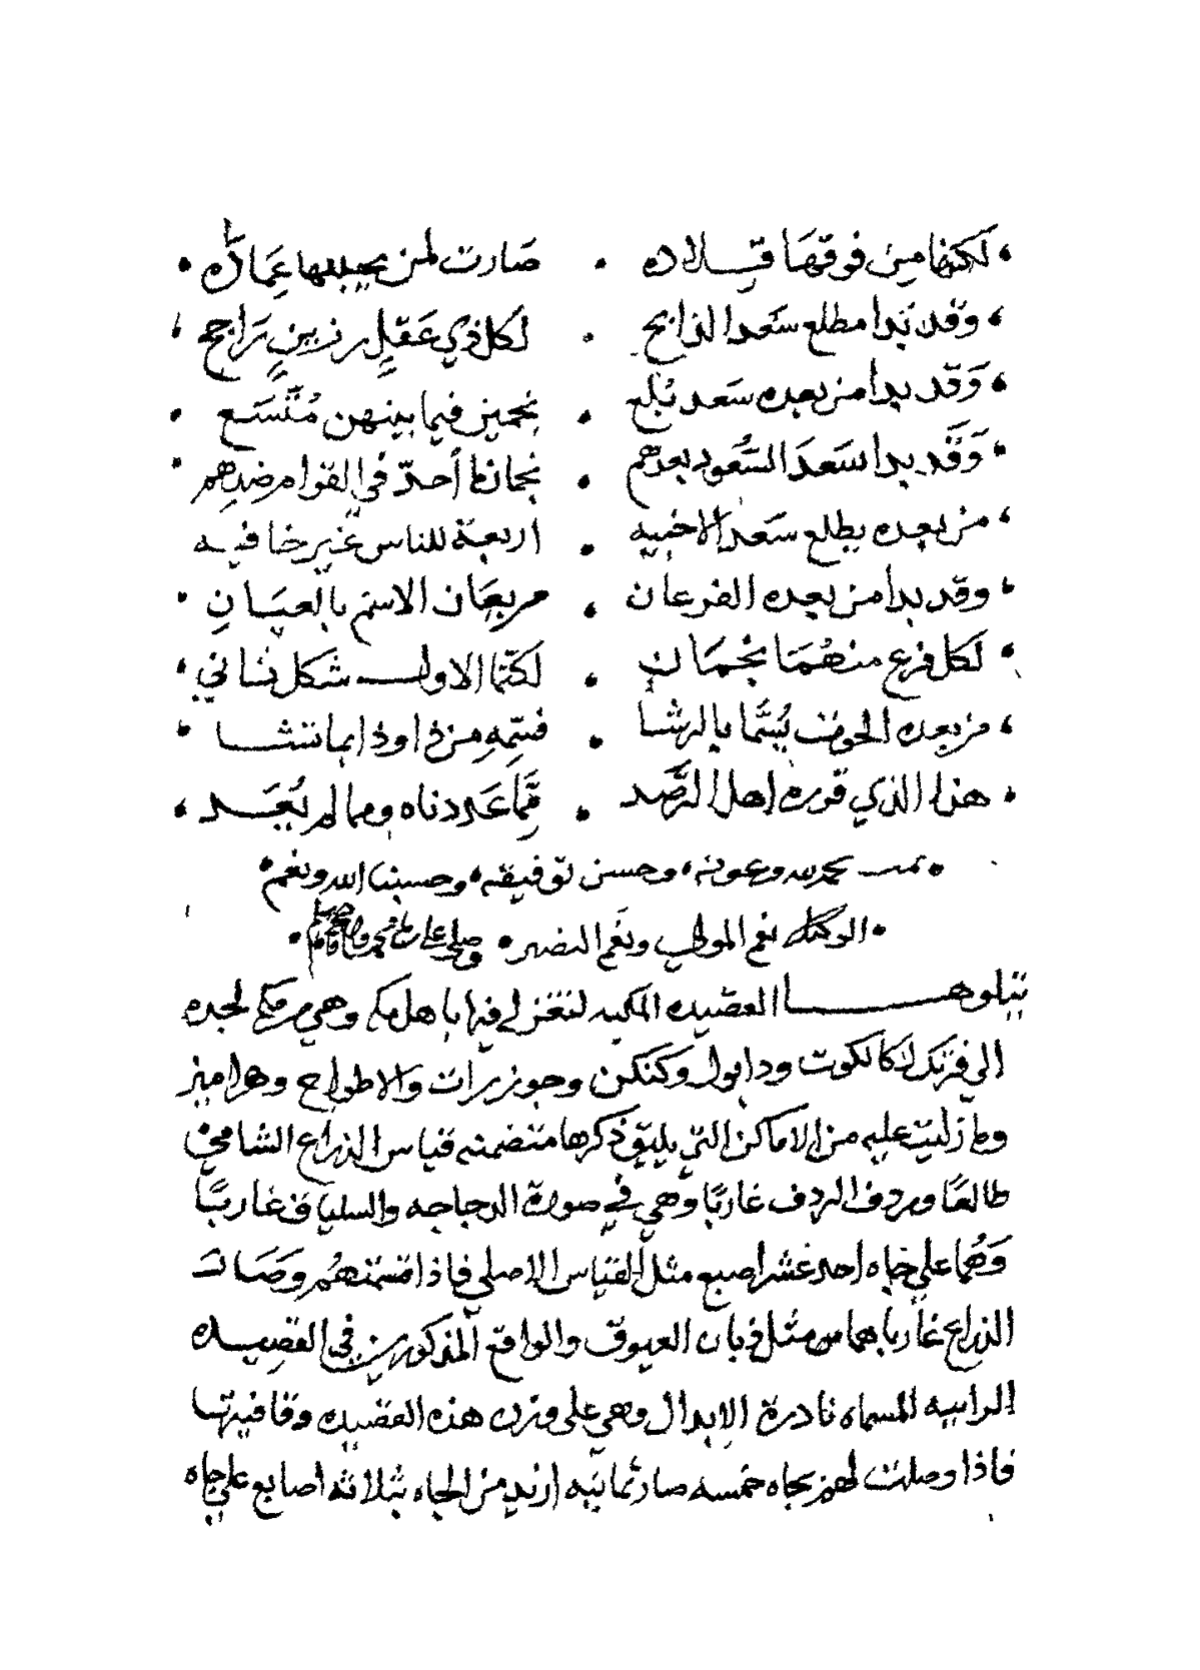 لكنها من فوقها قلاده • صارت لمن يحبها عماده
وقد بدا مطلع سعد الذابح • لكل ذي عقل رزين راجح
وقد بدا من بعده سعد بلع • نجمين فيما بينهن متسع
وقد بدا سعد السعود بعدهم • نجمان احد في القوام ضدهم
من بعده يطلع سعد الاخبيه • اربعة للناس غير خافيه
وقد بدا من بعده الفرعان • مربعان الاسم بالعيان
لكل فرع منهما نجمان • لكنما الاول شكل ثاني
من بعده الحوت يسما بالرشا • فسمه من ذا وذا بما تشا
هذا الذي قرره اهل الرصد • مما عددناه ومما لم يعد
تمت بحمد لله وعونه وحسن توفيقه وحسبنا الله ونعم
الوكيل نعم المولى ونعم النصير • وصلى على محمد
يتلوها القصيده المكيه لتغزلي فيها باهل مكه وهي من مكه لجده
الي فرتك لكالكوت ودابول وكنكن وجوزرات والاطواح وهراميز
وما زليت عليه من الاماكن التي يليق ذكرها متضمنه قياس الذراع الشامي
طالعًا وردف الردف غاربًا وهي في صورة الدجاجه والسلياق غاربًا
وهما علي جاه احد عشر اصبع مثل القياس الاصلي فاذا قستهم وصارت
الذراع غاربا هما مثل ذبان العيوق والواقع المذكورين في القصيده
الراييه المسماه نادرة الابدال وهي على وزن هذه القصيده وقافيتها
فاذا وصلت لهرمز بجاه خمسه صار ثمانيه ازيد من الجاه بثلاثه اصابع على جاه